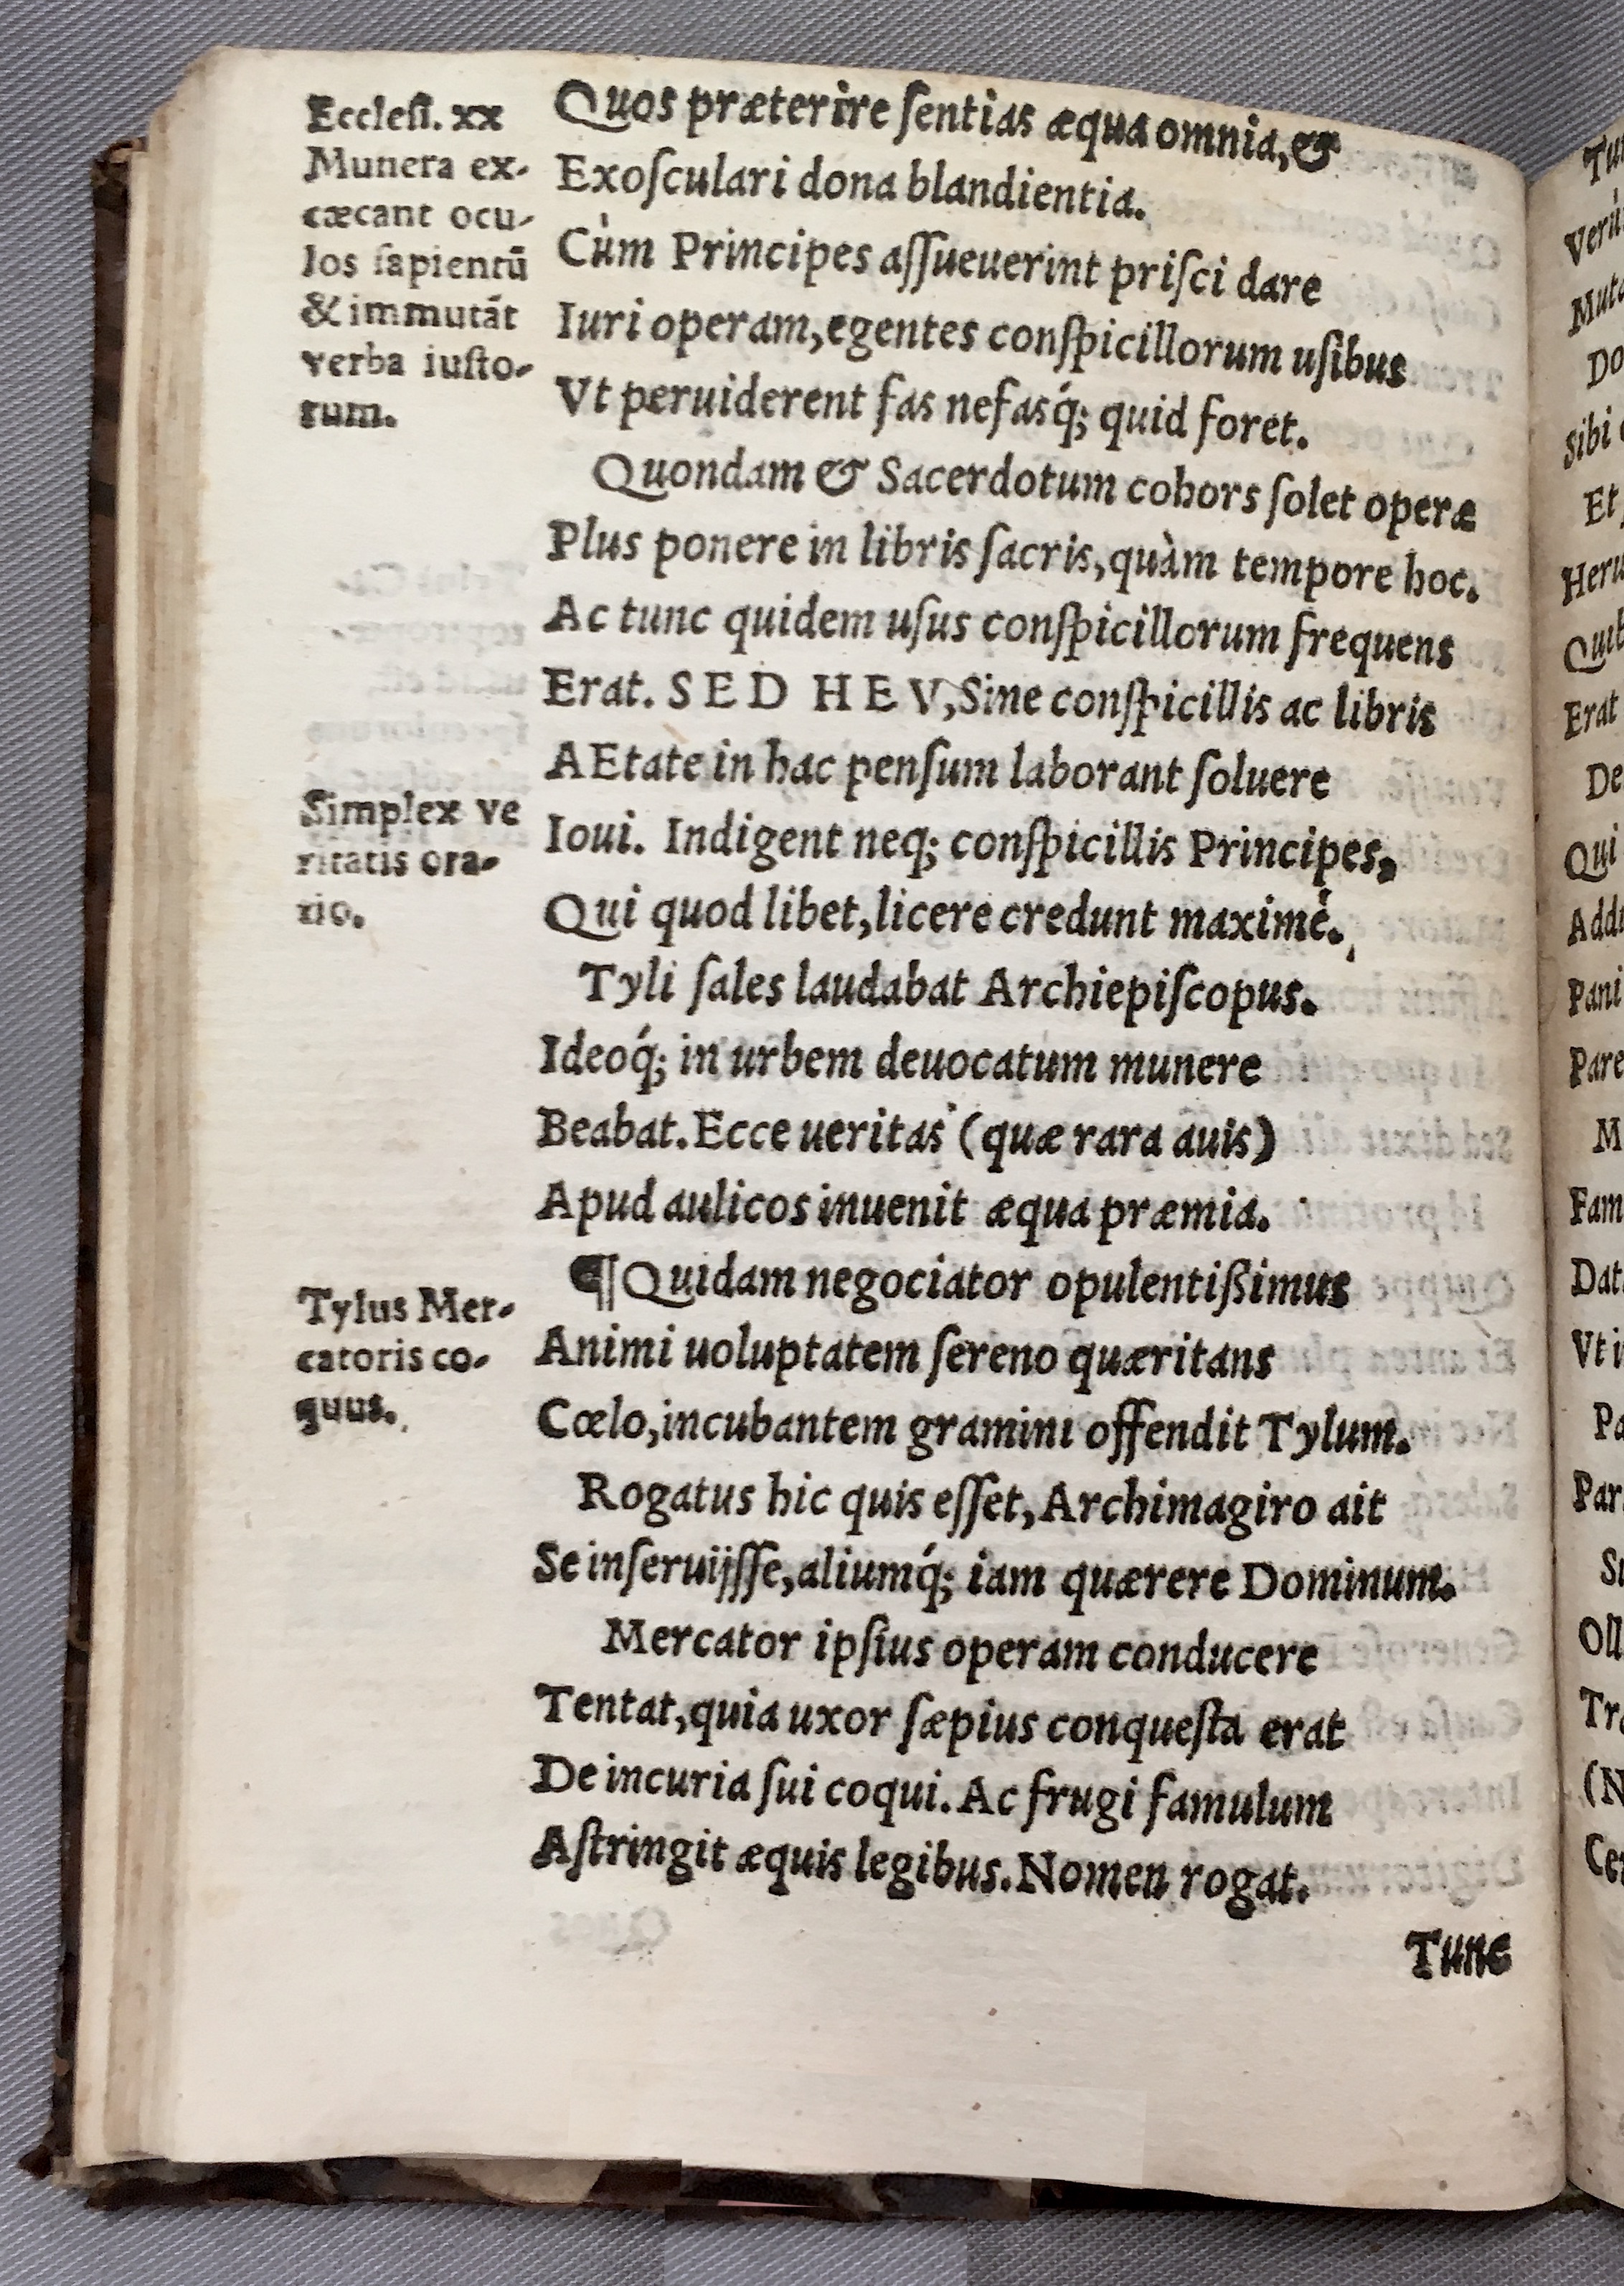 Ecclesi. xx
Munera ex-
cæcant ocu-
los sapientū
& immutāt
verba iusto-
rum.
Quos præterire ſentias æqua omnia, &
Exoſculari dona blandientia.
Cùm Principes aſſueuerint priſci dare
Iuri operam, egentes conſpicillorum uſibus
Vt peruiderent fas nefasq́; quid foret.
Quondam & Sacerdotum cohors ſolet operæ
Plus ponere in libris ſacris, quàm tempore hoc.
Ac tunc quidem uſus conſpicillorum frequens
Erat. SED HEV, Sine conſpicillis ac libris
AEtate in hac penſum laborant ſoluere
Simplex ve
ritatis ora-
tio.
Ioui. Indigent neq; conſpicillis Principes,
Qui quod libet, licere credunt maximè.
Tyli ſales laudabat Archiepiſcopus.
Ideoq́; in urbem deuocatum munere
Beabat. Ecce ueritas (quæ rara auis)
Apud aulicos inuenit æqua præmia.
Tylus Mer-
catoris co-
quus.
¶ Quidam negociator opulentißimus
Animi uoluptatem ſereno quæritans
Cœlo, incubantem gramini offendit Tylum.
Rogatus hic quis eſſet, Archimagiro ait
Se inſeruijſſe, aliumq́; iam quærere Dominum.
Mercator ipſius operam conducere
Tentat, quia uxor ſæpius conqueſta erat
De incuria ſui coqui. Ac frugi famulum
Aſtringit æquis legibus. Nomen rogat.
Tunc
Mut
Do
Sibi
Et
Erat
De
Qui
Pani
Pare
M
Fam
Vt
Pa
Par